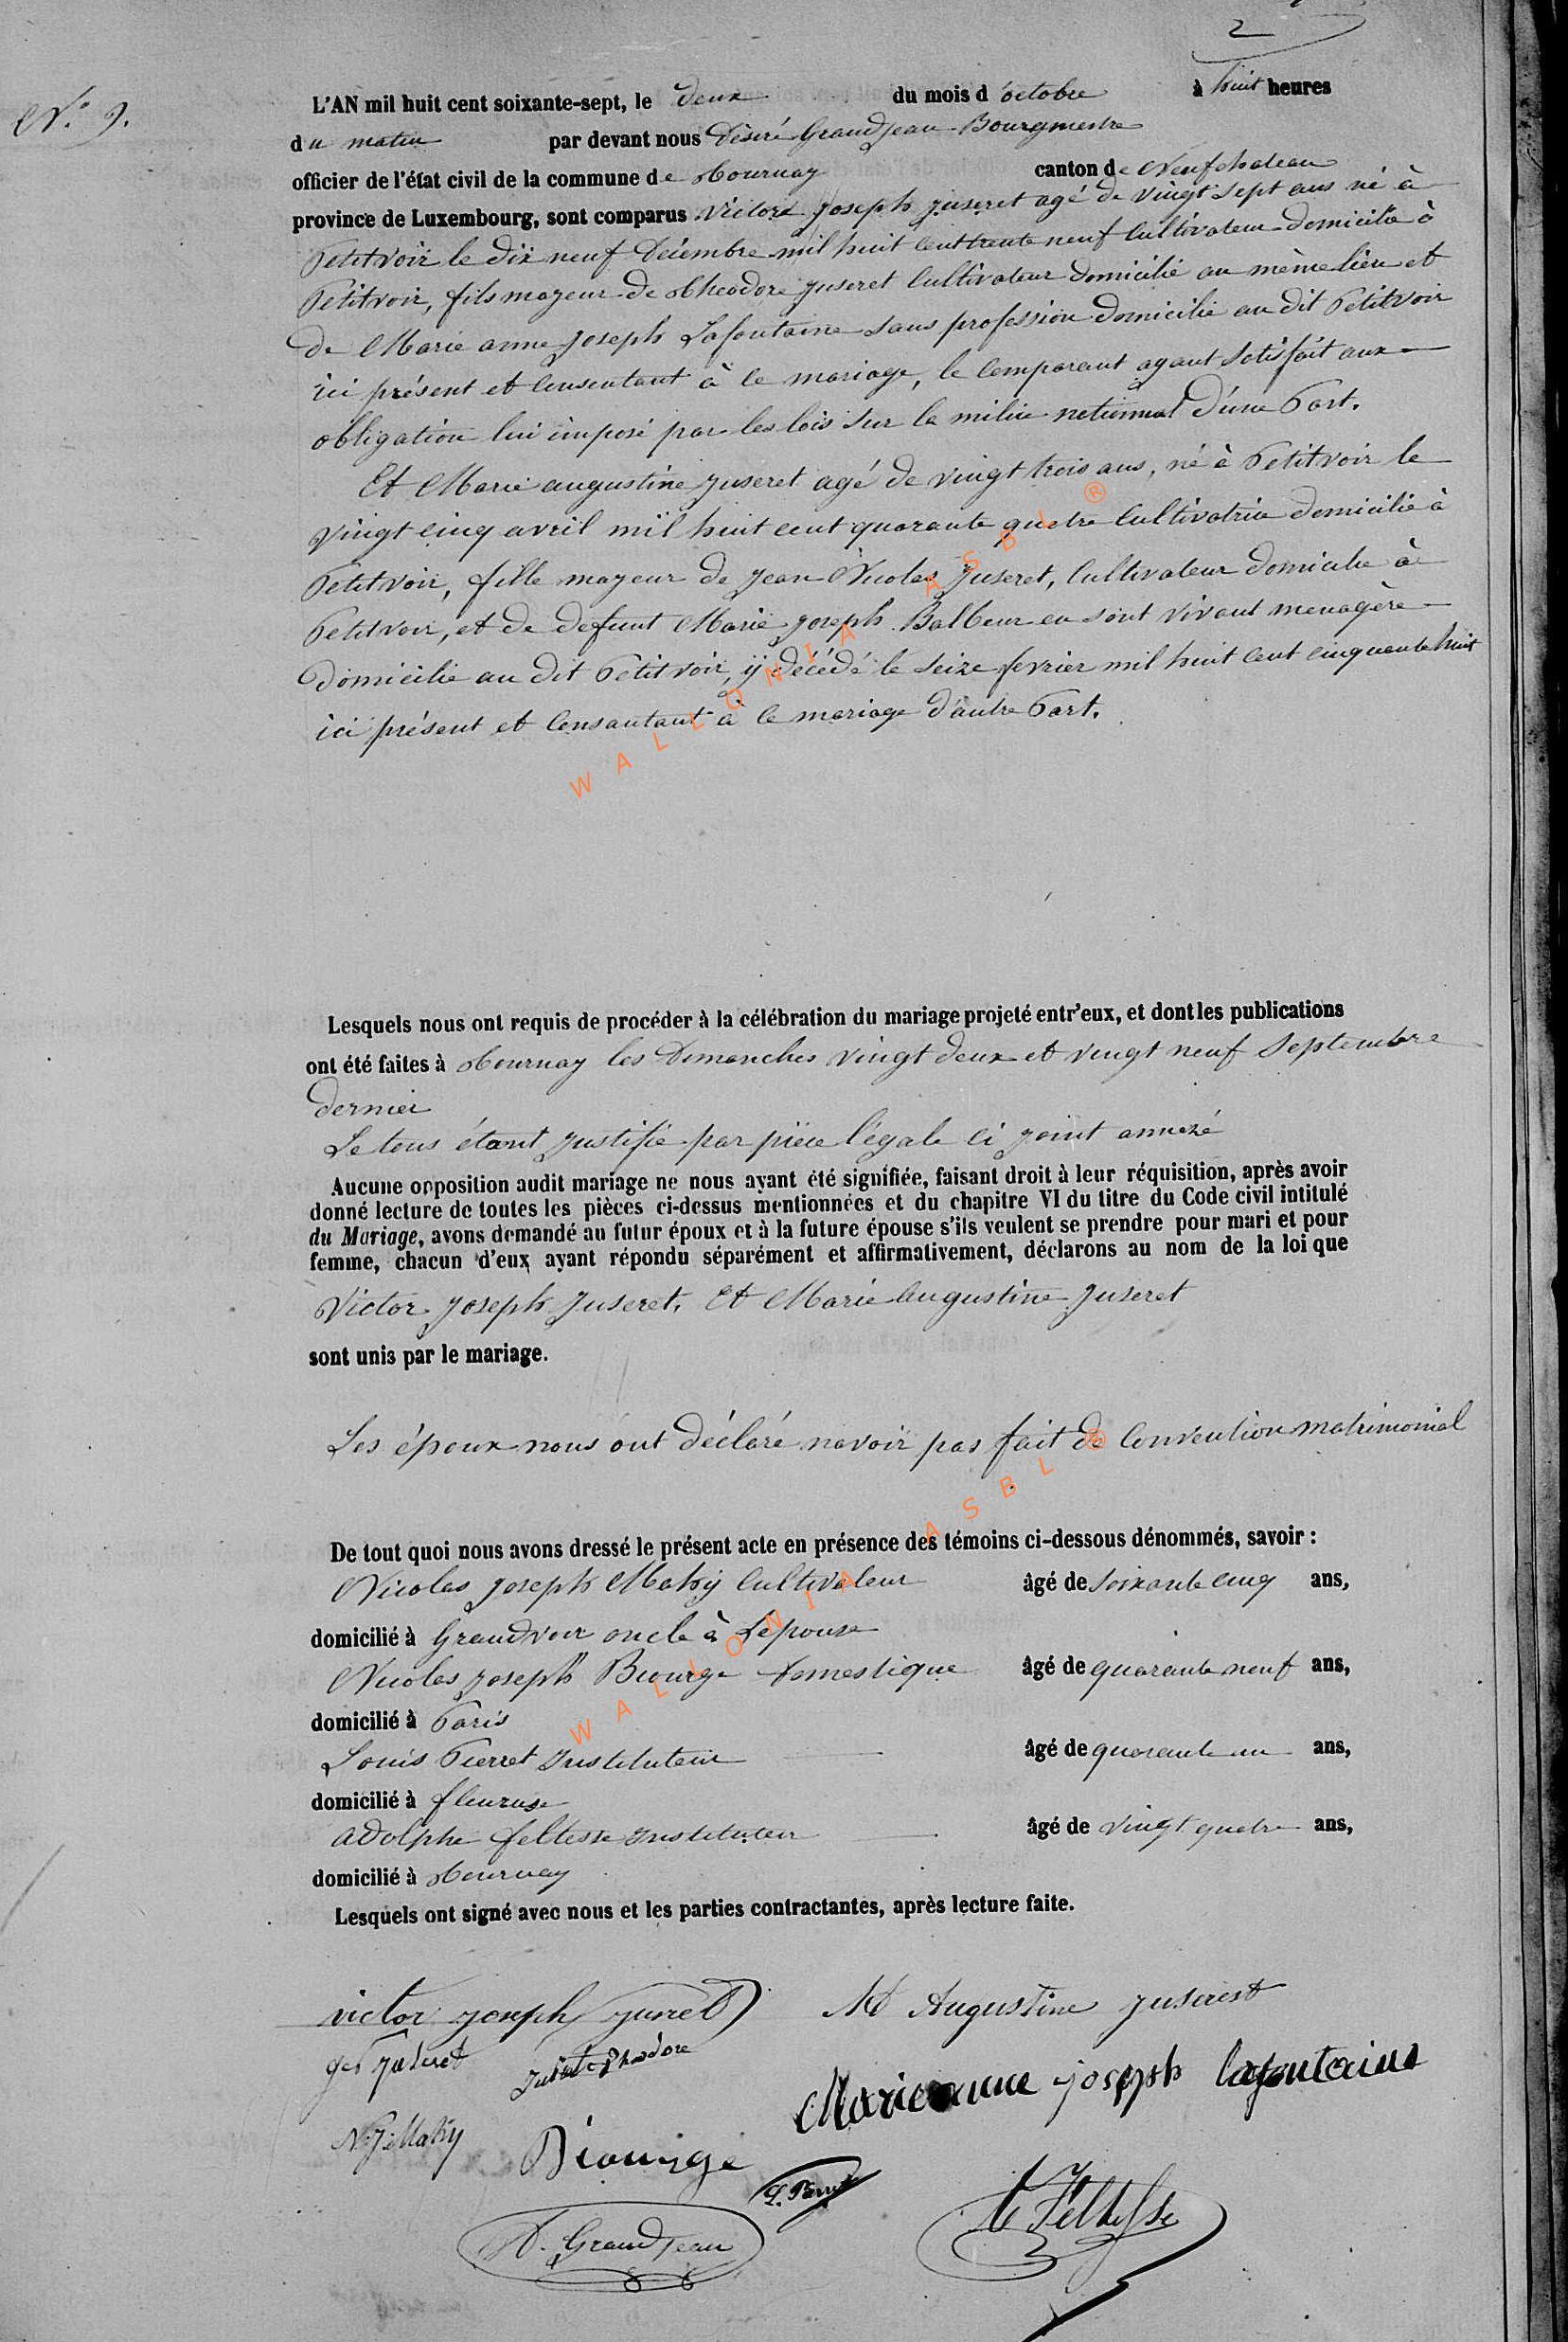 2
N.° 9.
L'AN mil huit cent soixante-sept, le deux du mois d'octobre à huit heures
du matin par devant nous Désiré Grandjean Bourgmestre
officier de l'état civil de la commune de Tournay canton de Neufchateau
province de Luxembourg, sont comparus Victor Joseph Juseret agé de vingt sept ans né à
Petitvoir le dix neuf Décembre mil huit cent trente neuf Cultivateur domicilié à
Petitvoir, fils mageur de Theodore Juseret Cultivateur domicilié au même lieu et
de Marie anne Joseph Lafontaine sans profession domicilié au dit Petitvoir
ici présent et Consentant à ce mariage, le Comparant ayant Satisfait aux
obligation lui imposé par les lois sur la milice national D'une Part.
Et Marie augustine Juseret agé de vingt trois ans, né à Petitvoir le
vingt cinq avril mil huit cent quarante quatre Cultivatrice domicilié à
Petitvoir, fille mageur de Jean Nicolas Juseret, Cultivateur domicilié à
Petitvoir, et de defunt Marie Joseph Balbeur en sont vivant menagère
Domicilié au dit Petitvoir, ÿ décédé le Seize fevrier mil huit cent cinquante huit
ici présent et Consantant à ce mariage d'autre Part.
WALLONIA ASBL ®
Lesquels nous ont requis de procéder à la célébration du mariage projeté entr'eux, et dont les publications
ont été faites à Tournay les Dimanches vingt deux et vingt neuf Septembre
dernier
Le tous étant justifié par pièce légale ci joint annexé
Aucune opposition audit mariage ne nous ayant été signifiée, faisant droit à leur réquisition, après avoir
donné lecture de toutes les pièces ci-dessus mentionnées et du chapitre VI du titre du Code civil intitulé
du Mariage, avons demandé au futur époux et à la future épouse s'ils veulent se prendre pour mari et pour
femme, chacun d'eux ayant répondu séparément et affirmativement, déclarons au nom de la loi que
Victor Joseph Juseret. Et Marie augustine Juseret
sont unis par le mariage.
Les époux nous ont déclaré navoir pas fait de Convention matrimonial
WALLONIA ASBL ®
De tout quoi nous avons dressé le présent acte en présence des témoins ci-dessous dénommés, savoir :
Nicolas Joseph Mahÿ Cultivateur âgé de Soixante cinq ans,
domicilié à Grandvoir oncle à Lépouse
Nicolas Joseph Biourge Domestique âgé de quarante neuf ans,
domicilié à Paris
Louis Pierret Instituteur âgé de quarante un ans,
domicilié à fleuruse
adolphe feltesse Instituteur âgé de vingt quatre ans,
domicilié à Tournay
Lesquels ont signé avec nous et les parties contractantes, après lecture faite.
victor joseph juseret M Augustine juserest
Juseret Théodore
Marie anne joseph lafontaine
N. J. Mahy Biourge
D. Grandjean A Feltesse